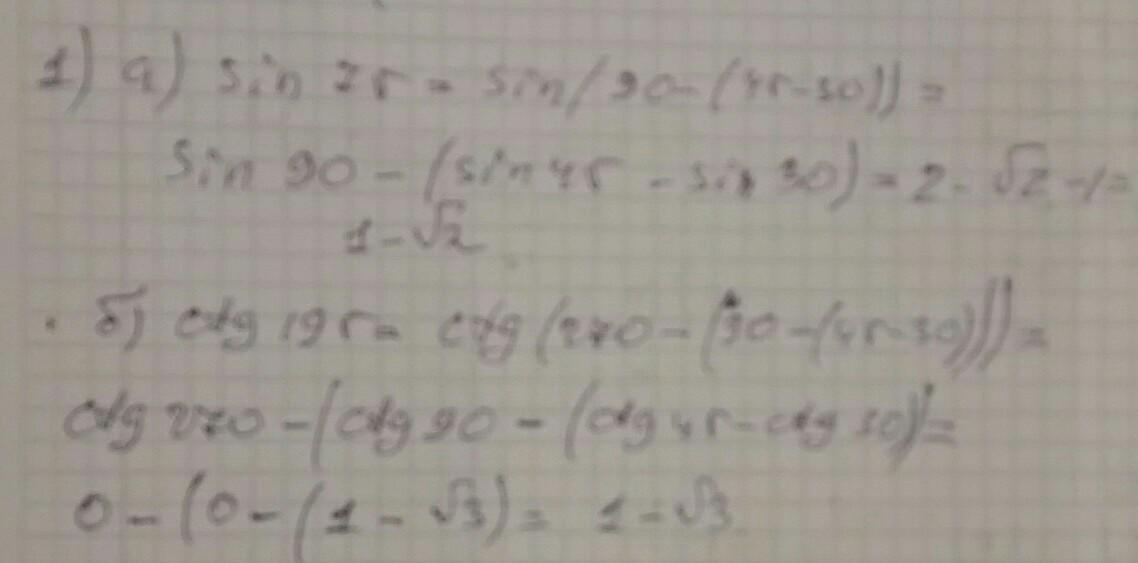 1) а) sin 75 = sin(90-(45-30)) =
sin 90 - (sin 45 - sin 30) = 2 - √2 - 1 =
1 - √2
б) ctg 195 = ctg (270 - (90 - (45-30))) =
ctg 270 - (ctg 90 - (ctg 45 - ctg 30)) =
0 - (0 - (1 - √3) = 1 - √3